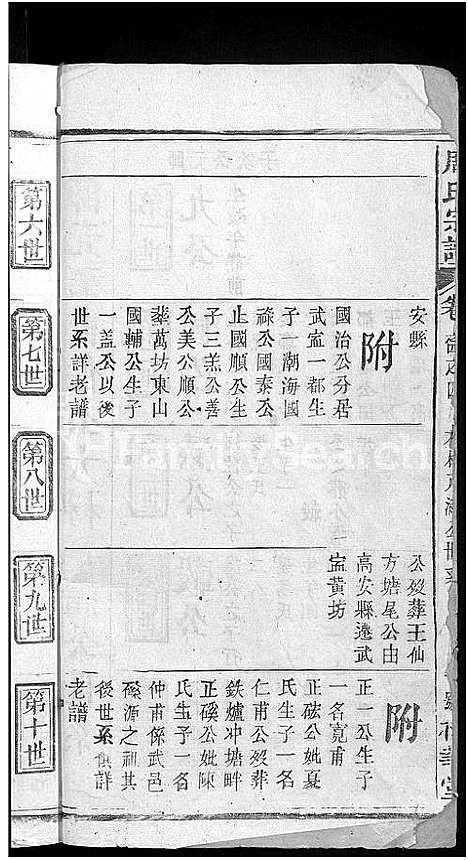 周氏宗譜
卷
安縣
附
國治公分居
武寍一都生
子一潮海國
祿公國泰公
止國順公生
子三羔公善
公美公順公
葬萬坊東山
國輔公生子
一盖公以後
世系詳老譜
公歿葬王仙
方塘尾公由
高安縣遷武
寍黄坊
附
正一公生子
一名寛甫
正磁公妣夏
氏生子一名
仁甫公歿葬
鉄爐冲塘畔
正磎公妣陳
氏生子一名
仲甫係武邑
磎源之祖其
後世系俱詳
老譜
第六世
第七世
第八世
第九世
第十世